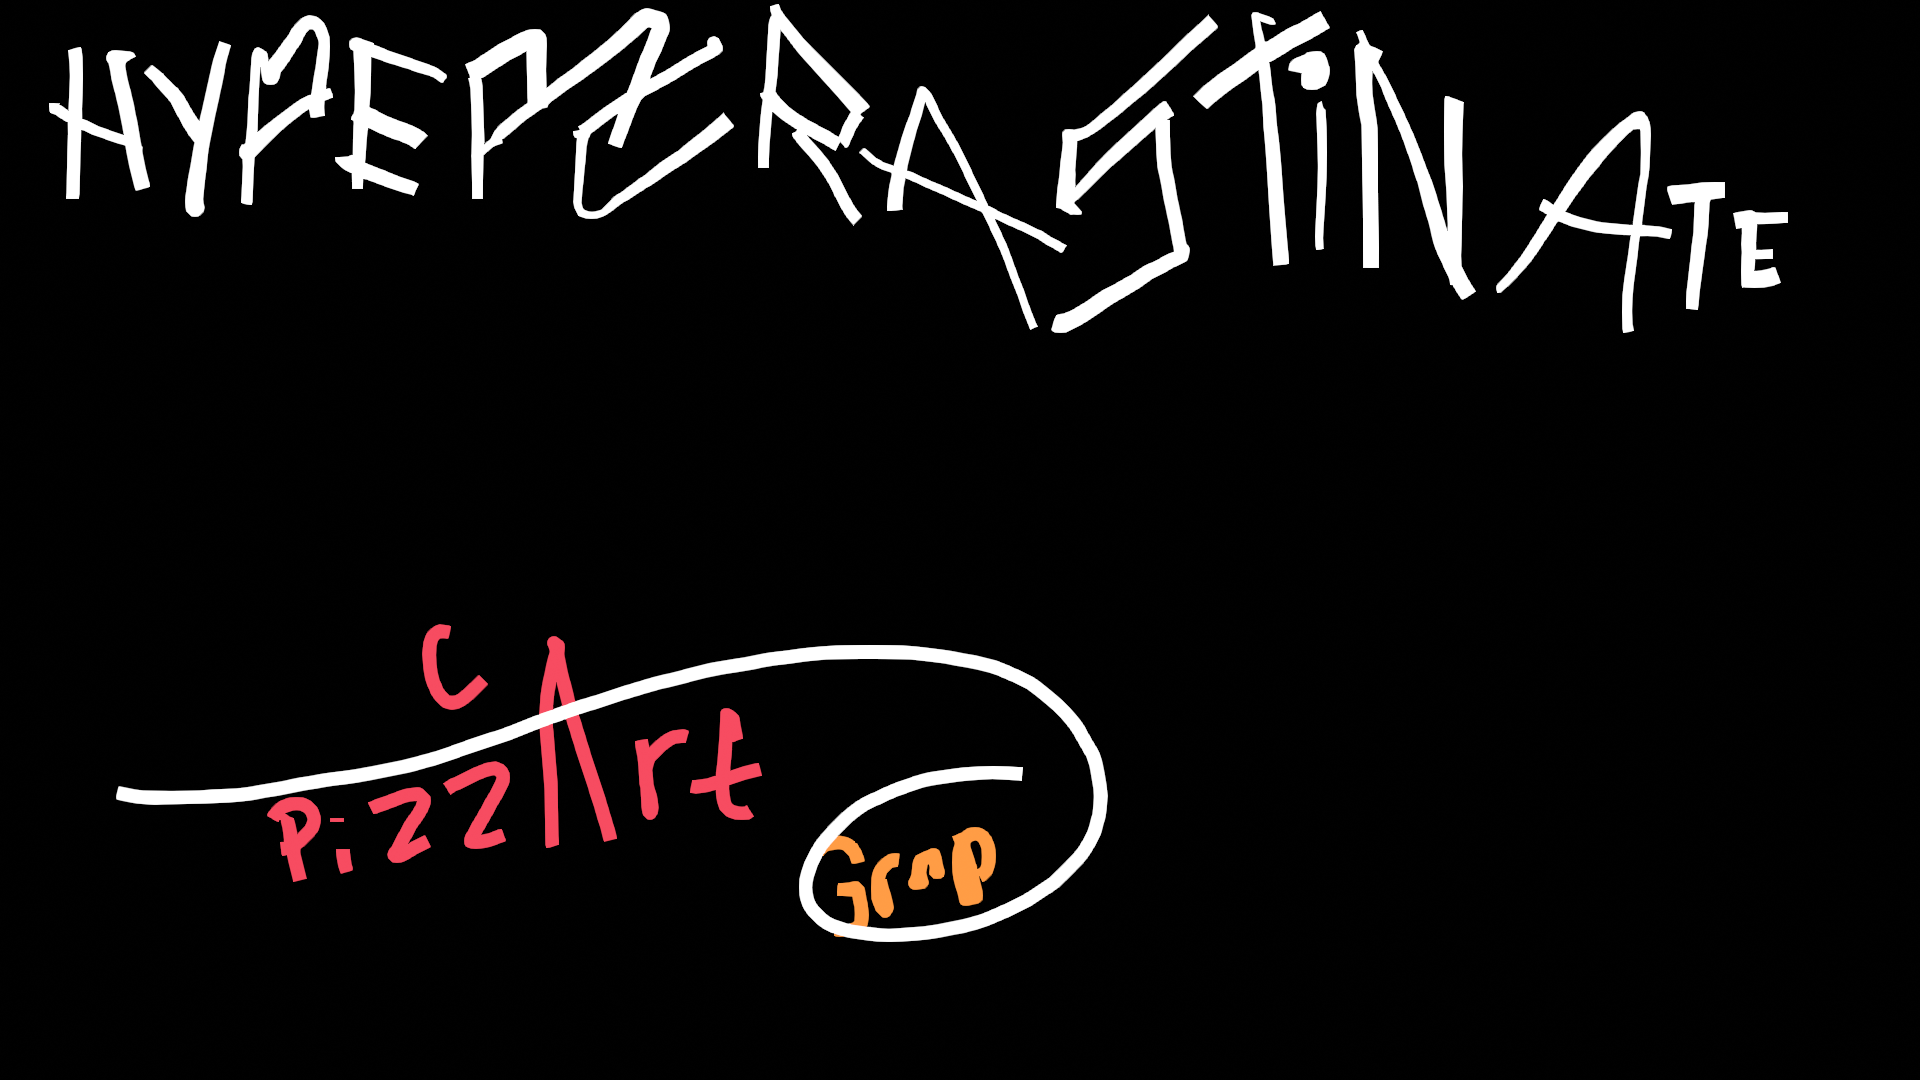 HYPEPZERASTiNATE
C
P:zzArt
Grap